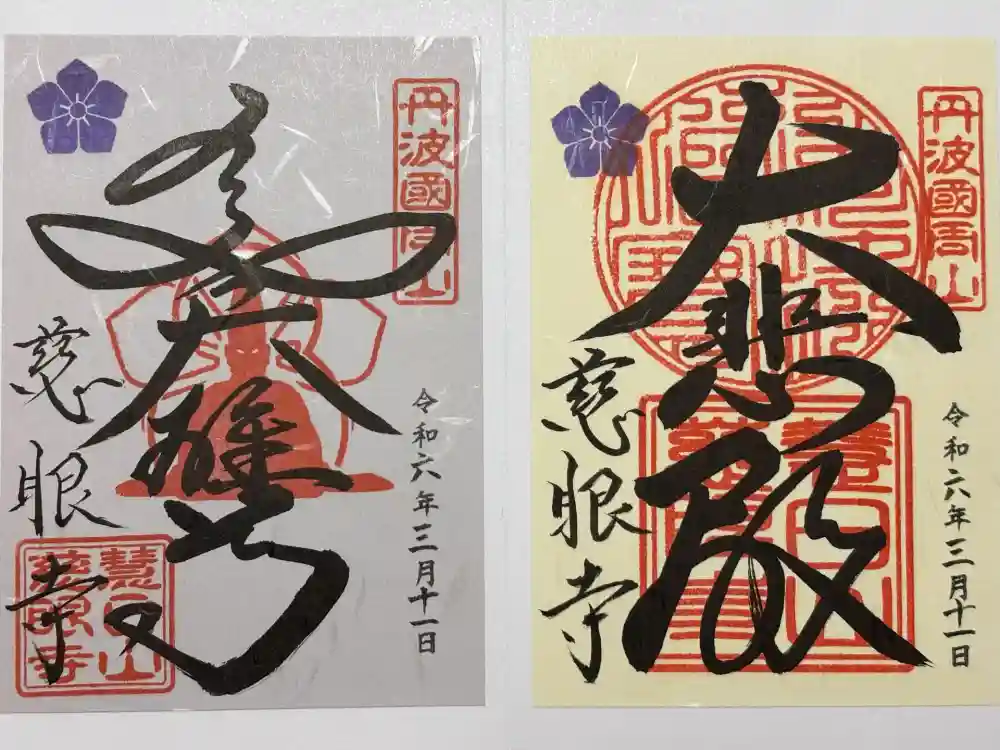 丹波國周山
大雄
慈眼寺
令和六年三月十一日
慧日山
慈眼寺
丹波國周山
大悲殿
慈眼寺
令和六年三月十一日
慧日山